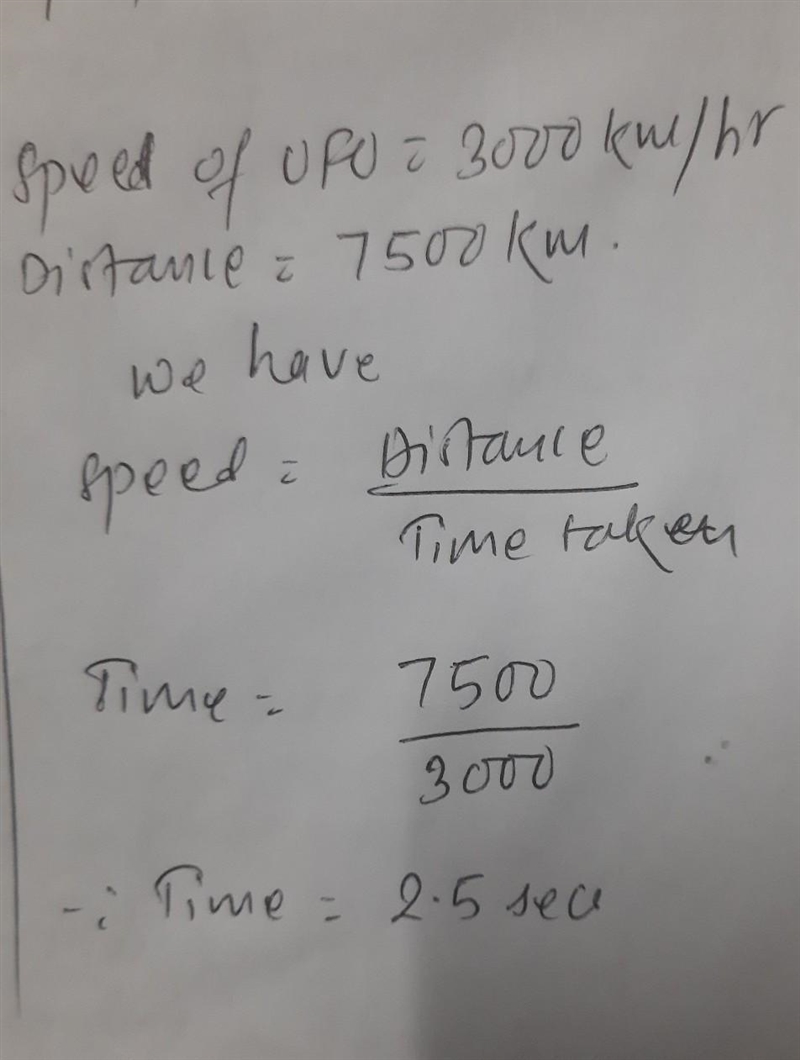 Speed of UFO = 3000 km/hr
Distance = 7500 km.
we have
Speed = Distance
Time taken
Time = 7500
3000
∴ Time = 2.5 sec